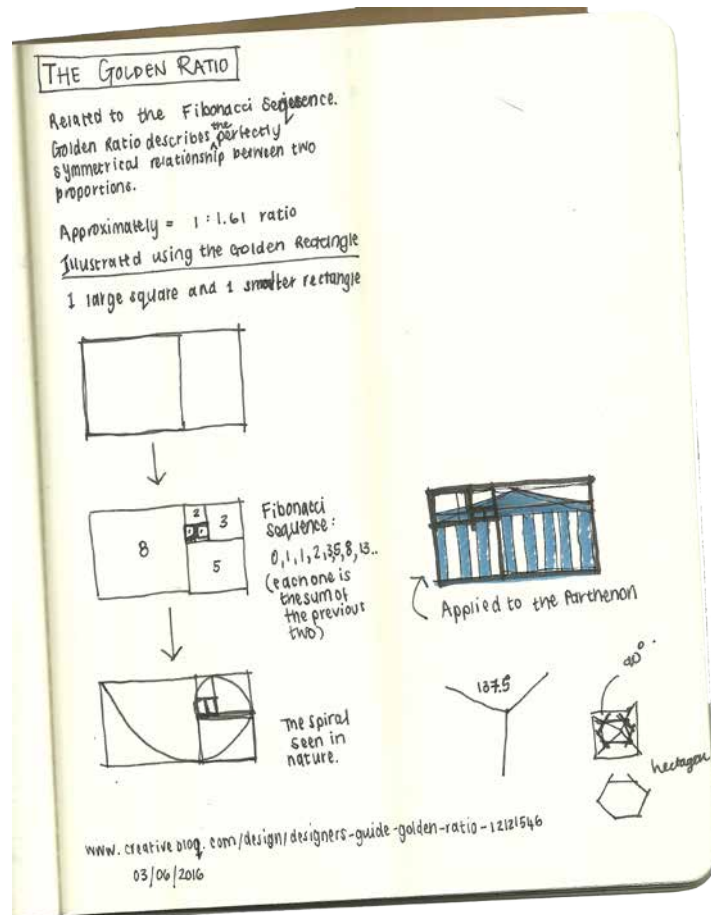 THE GOLDEN RATIO
Related to the Fibonacci Sequence.
Golden Ratio describes the perfectly
symmetrical relationship between two
proportions.
Approximately = 1:1.61 ratio
Illustrated using the Golden Rectangle
1 large square and 1 smaller rectangle
2
3
8
5
Fibonacci
Sequence:
0,1,1,2,3,5,8,13..
(each one is
the sum of
the previous
two)
Applied to the Parthenon
The spiral
seen in
nature.
137.5°
90°.
hectagon
www.creativebloq.com/design/designers-guide-golden-ratio-12121546
03/06/2016